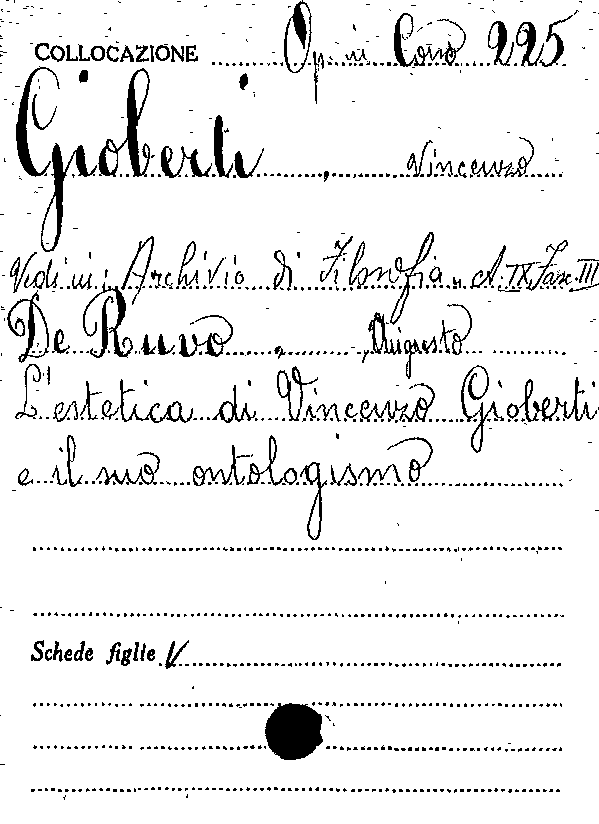 COLLOCAZIONE Op. in Cons 225
Gioberti, Vincenzo
Vedi in: Archivio di Filosofia, A. IX Fasc. III
De Ruvo, Augusto
L'estetica di Vincenzo Gioberti
e il suo ontologismo
Schede figlie V